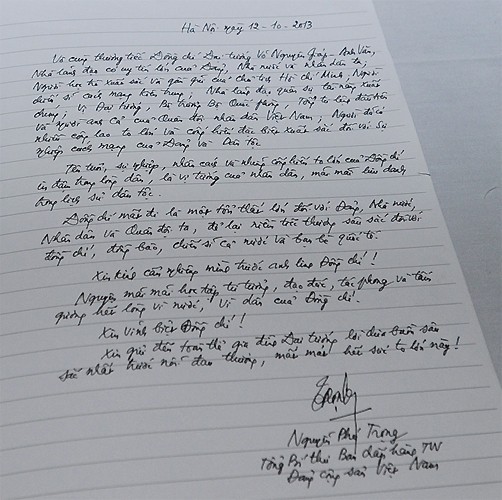 Hà Nội ngày 12-10-2013
Vô cùng thương tiếc Đồng chí Đại tướng Võ Nguyên Giáp - Anh Văn,
Nhà lãnh đạo có uy tín lớn của Đảng, Nhà nước và nhân dân ta;
Người học trò xuất sắc và gần gũi của chủ tịch Hồ Chí Minh; Người
chiến sĩ cách mạng kiên trung; Nhà lãnh đạo quân sự tài năng xuất
chúng; Vị Đại tướng, Bộ trưởng Bộ Quốc phòng, Tổng tư lệnh đầu tiên
và người anh cả của Quân đội nhân dân Việt Nam; Người đã có
nhiều công lao to lớn và cống hiến đặc biệt xuất sắc đối với Sự
nghiệp cách mạng của Đảng và Dân tộc.
Tên tuổi, sự nghiệp, nhân cách và những cống hiến to lớn của Đồng chí
in đậm trong lòng dân, là vị tướng của nhân dân, mãi mãi lưu danh
trong lịch sử dân tộc.
Đồng chí mất đi là một tổn thất lớn đối với Đảng, Nhà nước,
Nhân dân và Quân đội ta, để lại niềm tiếc thương sâu sắc đối với
đồng chí, đồng bào, chiến sĩ cả nước và bạn bè quốc tế.
Xin kính cẩn nghiêng mình trước anh linh Đồng chí!
Nguyện mãi mãi học tập tư tưởng, đạo đức, tác phong và tấm
gương hết lòng vì nước, vì dân của Đồng chí.
Xin Vĩnh biệt Đồng chí!
Xin gửi đến toàn thể gia đình Đại tướng lời chia buồn sâu
sắc nhất trước nỗi đau thương, mất mát hết sức to lớn này!
Trọng
Nguyễn Phú Trọng
Tổng Bí thư Ban chấp hành TW
Đảng cộng sản Việt Nam